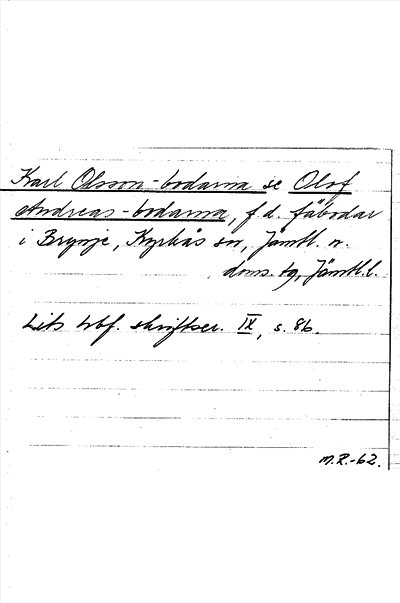 Karl Olsson-bodarna se Olof
Andreas-bodarna, f d. fäbodar
i Brynje, Kyrkås sn, Jämtl. n.
doms. tg, Jämtl.l.
Lits hbf. skriftser. IX, s. 86.
M.R.-62.